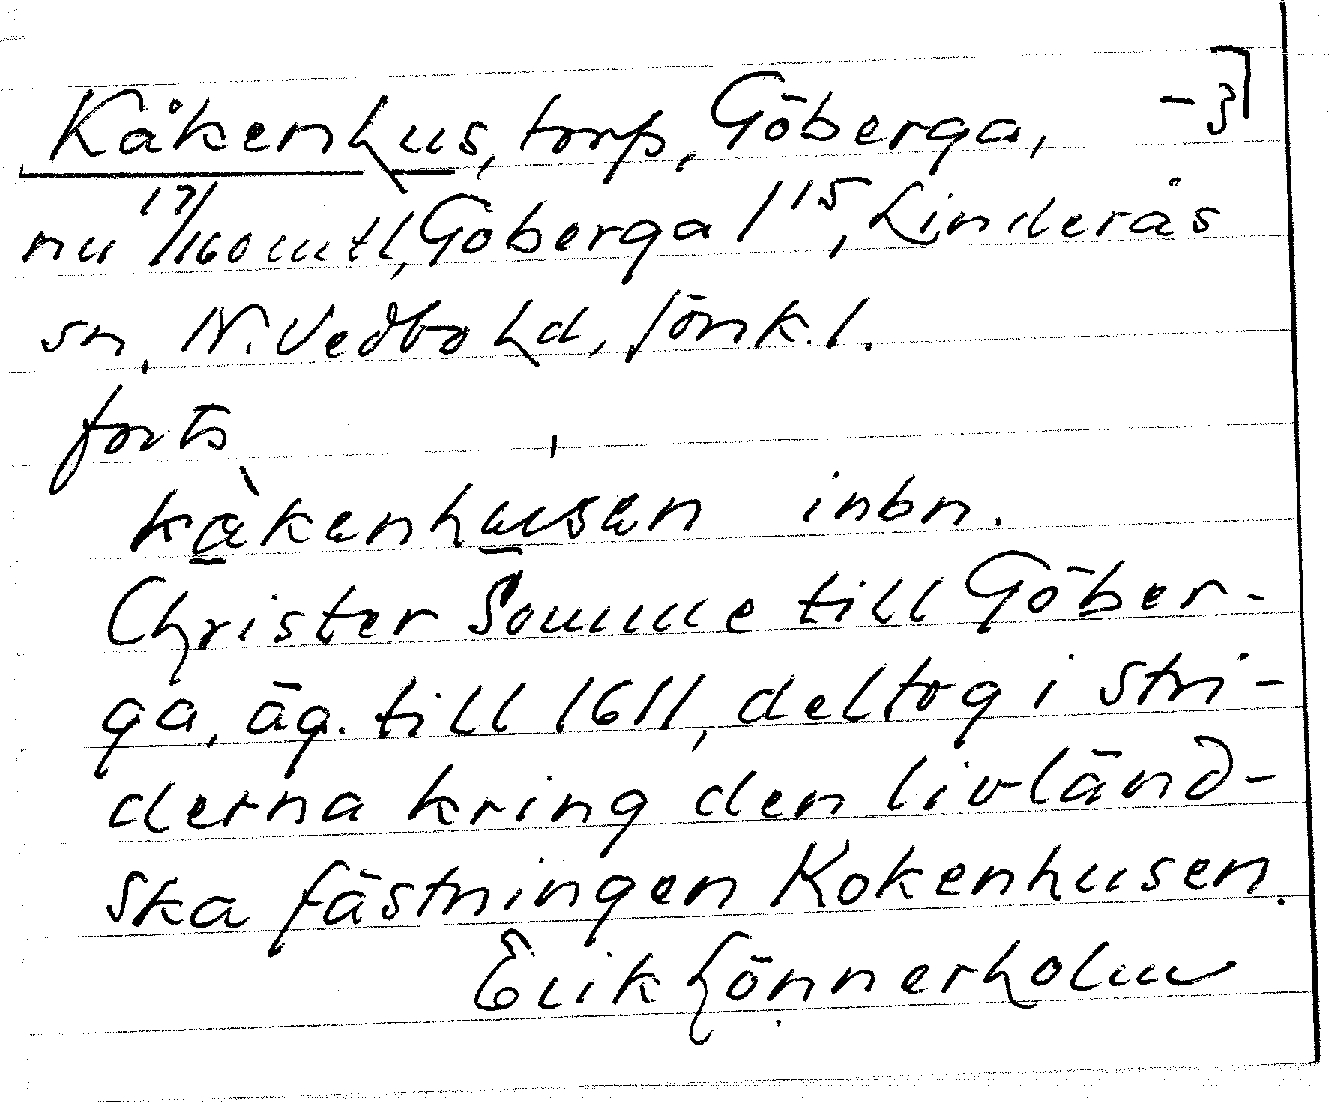 Kåkenhus, torp, Göberga, -3]
nu 17/160 mtl, Göberga 1 15, Linderås
sn, N. Vedbo hd, Jönk. l.
forts
kåkenhusen inbn.
Christer Somme till Göber-
ga, äg. till 1611, deltog i stri-
derna kring den livländ-
ska fästningen Kokenhusen.
Erik Lönnerholm